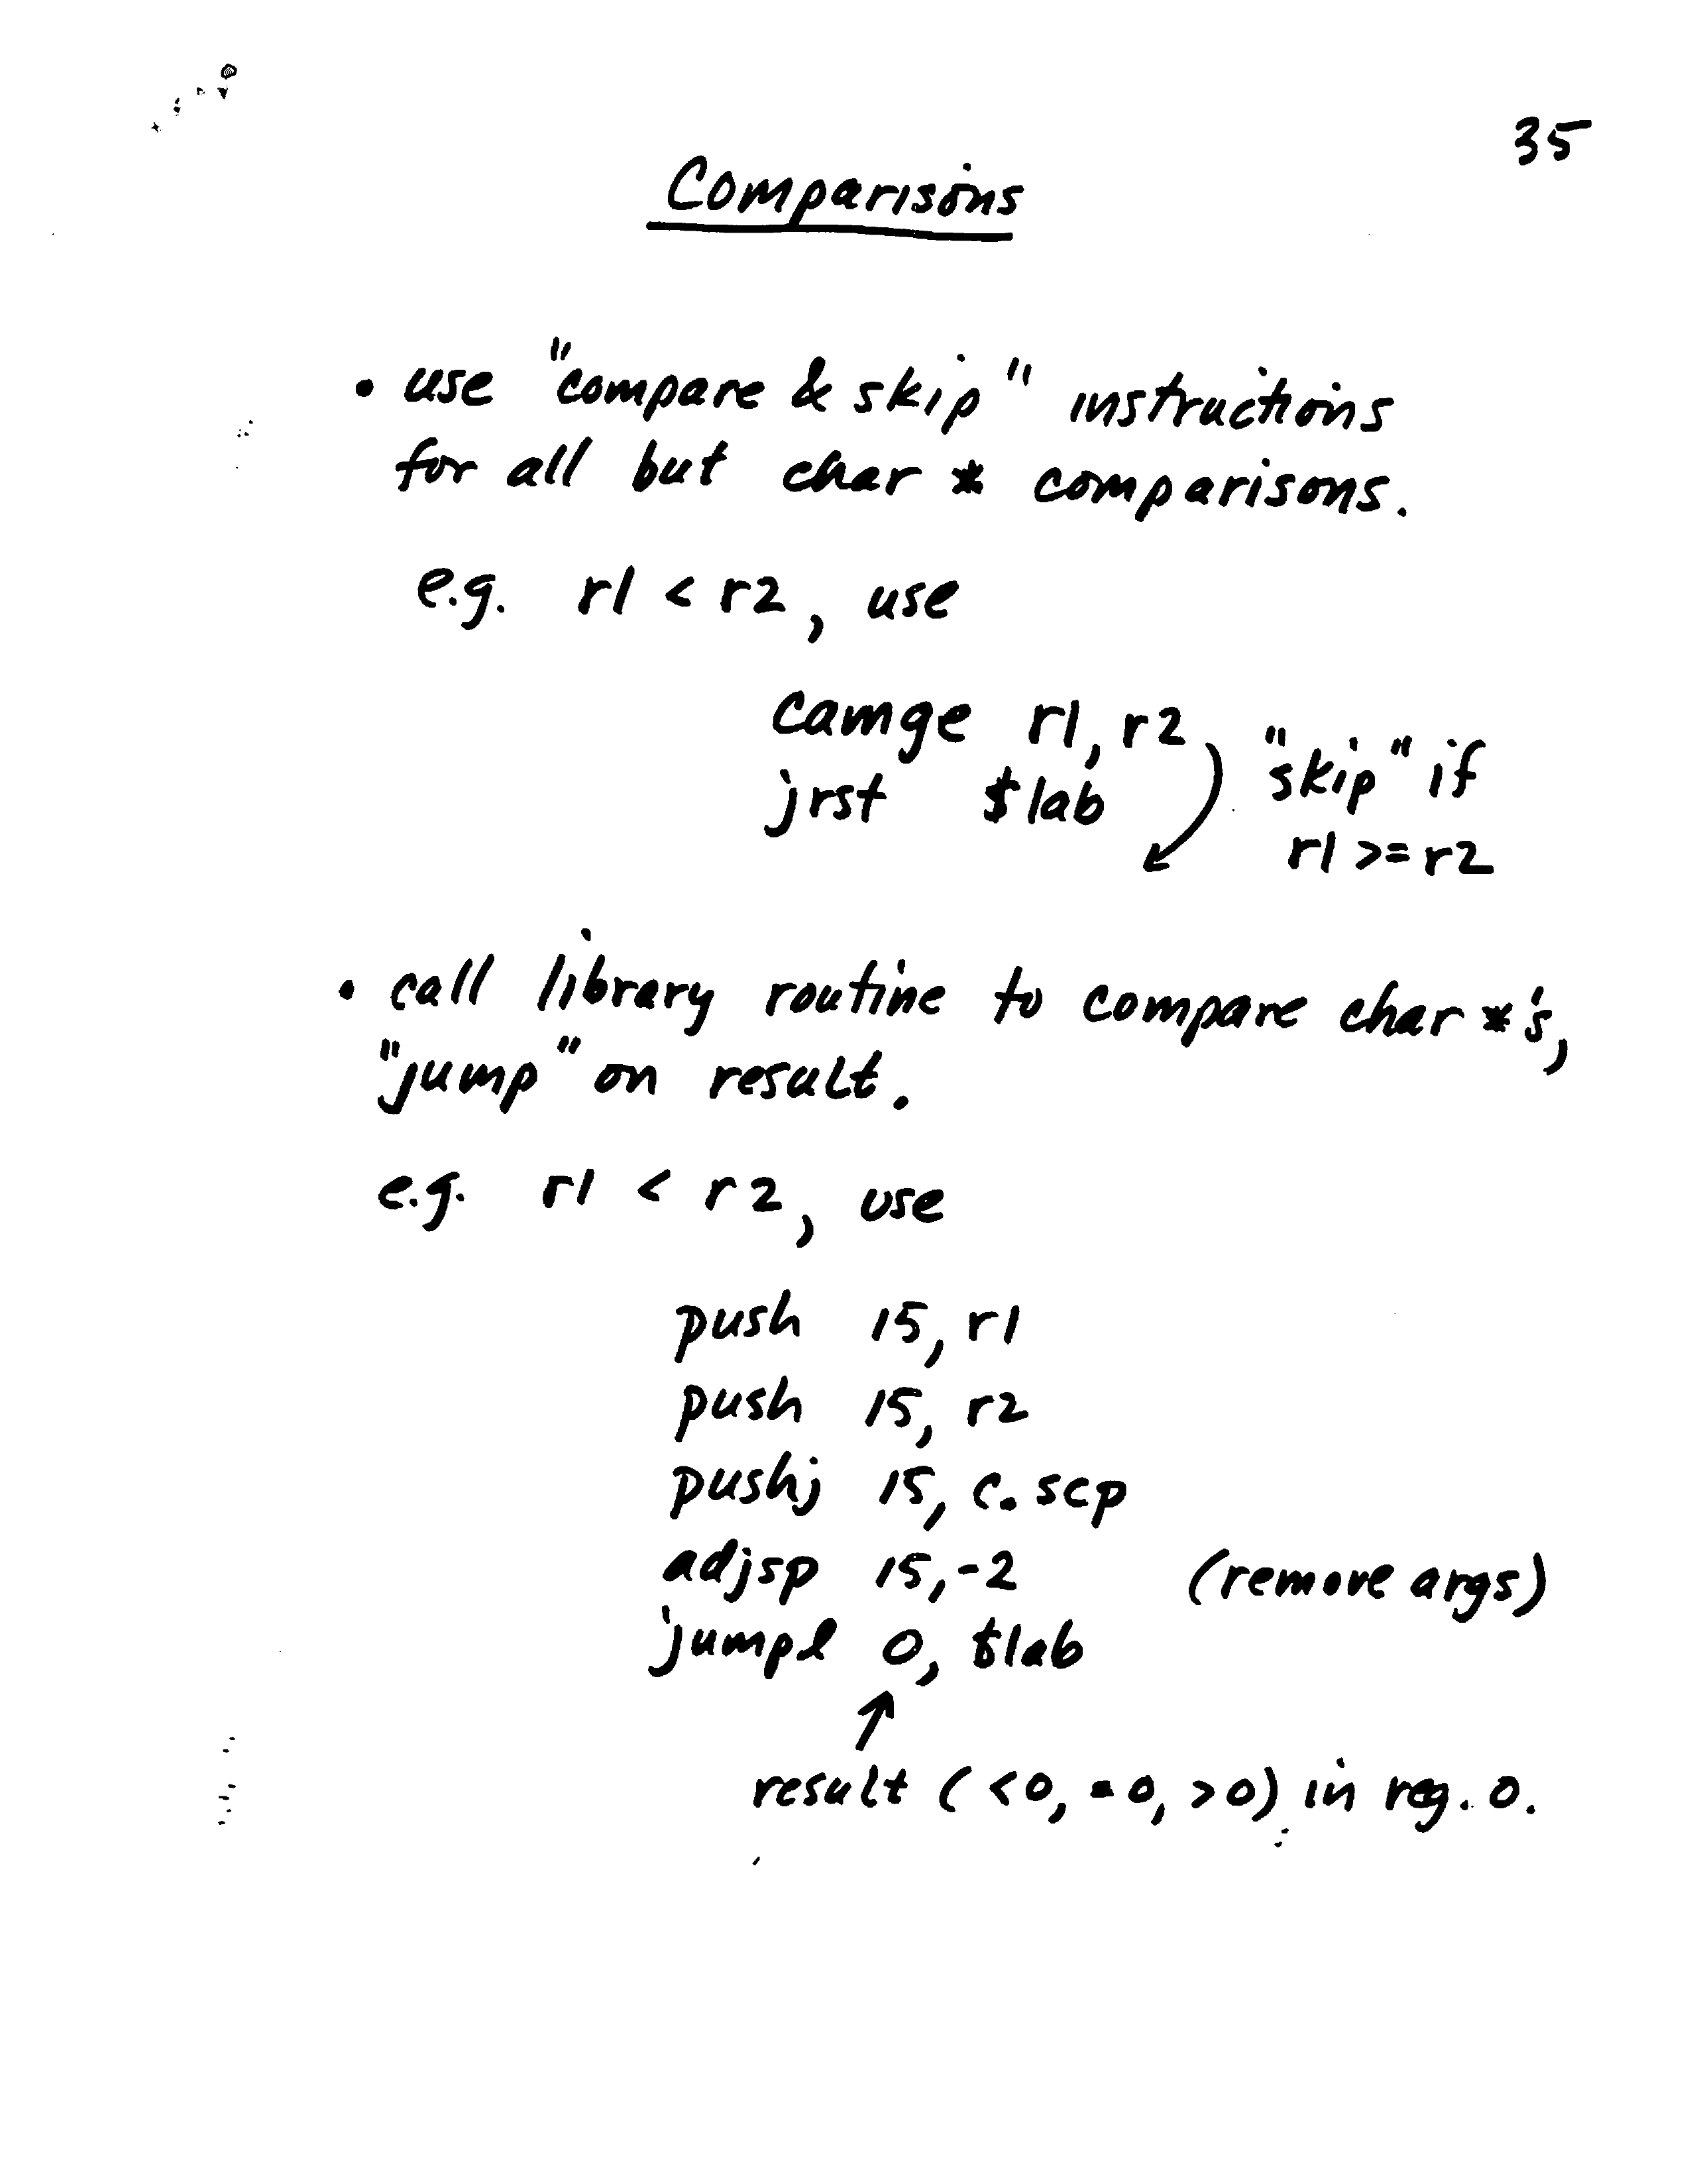 35
Comparisons
• use "compare & skip" instructions
for all but char * comparisons.
e.g. r1 < r2, use
camge r1, r2
jrst $lab
"skip" if
r1 >= r2
• call library routine to compare char *'s,
"jump" on result.
e.g. r1 < r2, use
push 15, r1
push 15, r2
pushj 15, c.scp
adjsp 15, -2 (remove args)
jumpl 0, $lab
↑
result ( <0, =0, >0) in reg. 0.